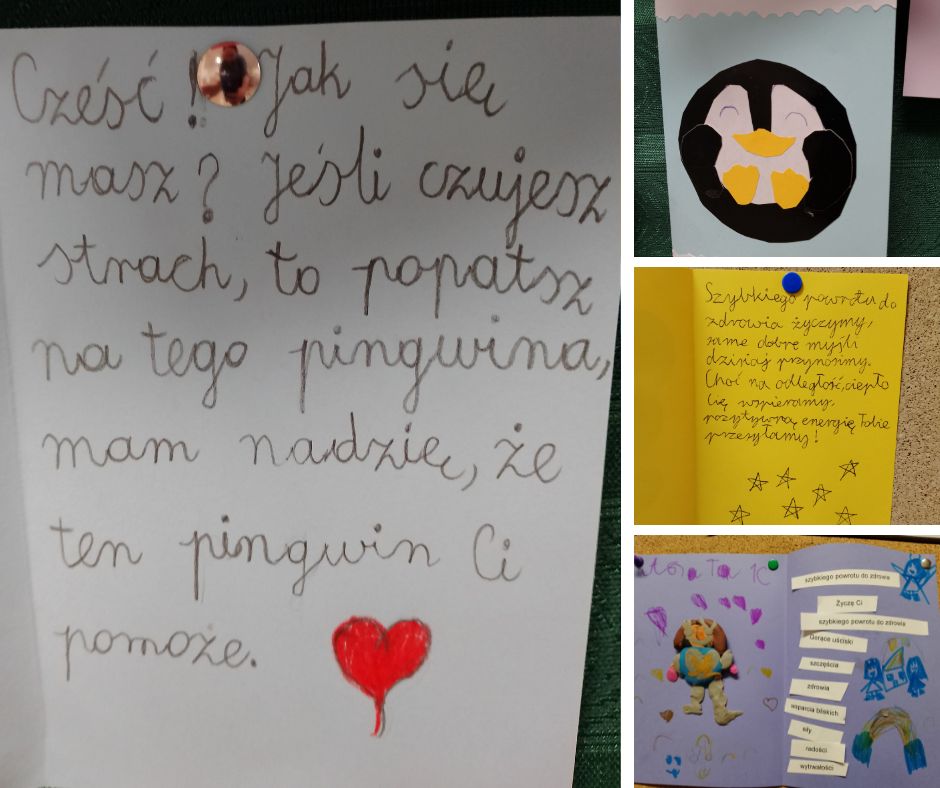 Cześć! Jak się
masz? Jeśli czujesz
strach, to popatsz
na tego pingwina,
mam nadzieę, że
ten pingwin Ci
pomoże.
Szybkiego powrotu do
zdrowia życzymy,
same dobre myśli
dzisiaj przynosimy.
Choć na odległość, ciepło
Cię wspieramy,
pozytywną energię Tobie
przesyłamy!
1C
szybkiego powrotu do zdrowia
Życzę Ci
szybkiego powrotu do zdrowia
Gorące uściski
szczęścia
zdrowia
wsparcia bliskich
siły
radości
wytrwałości